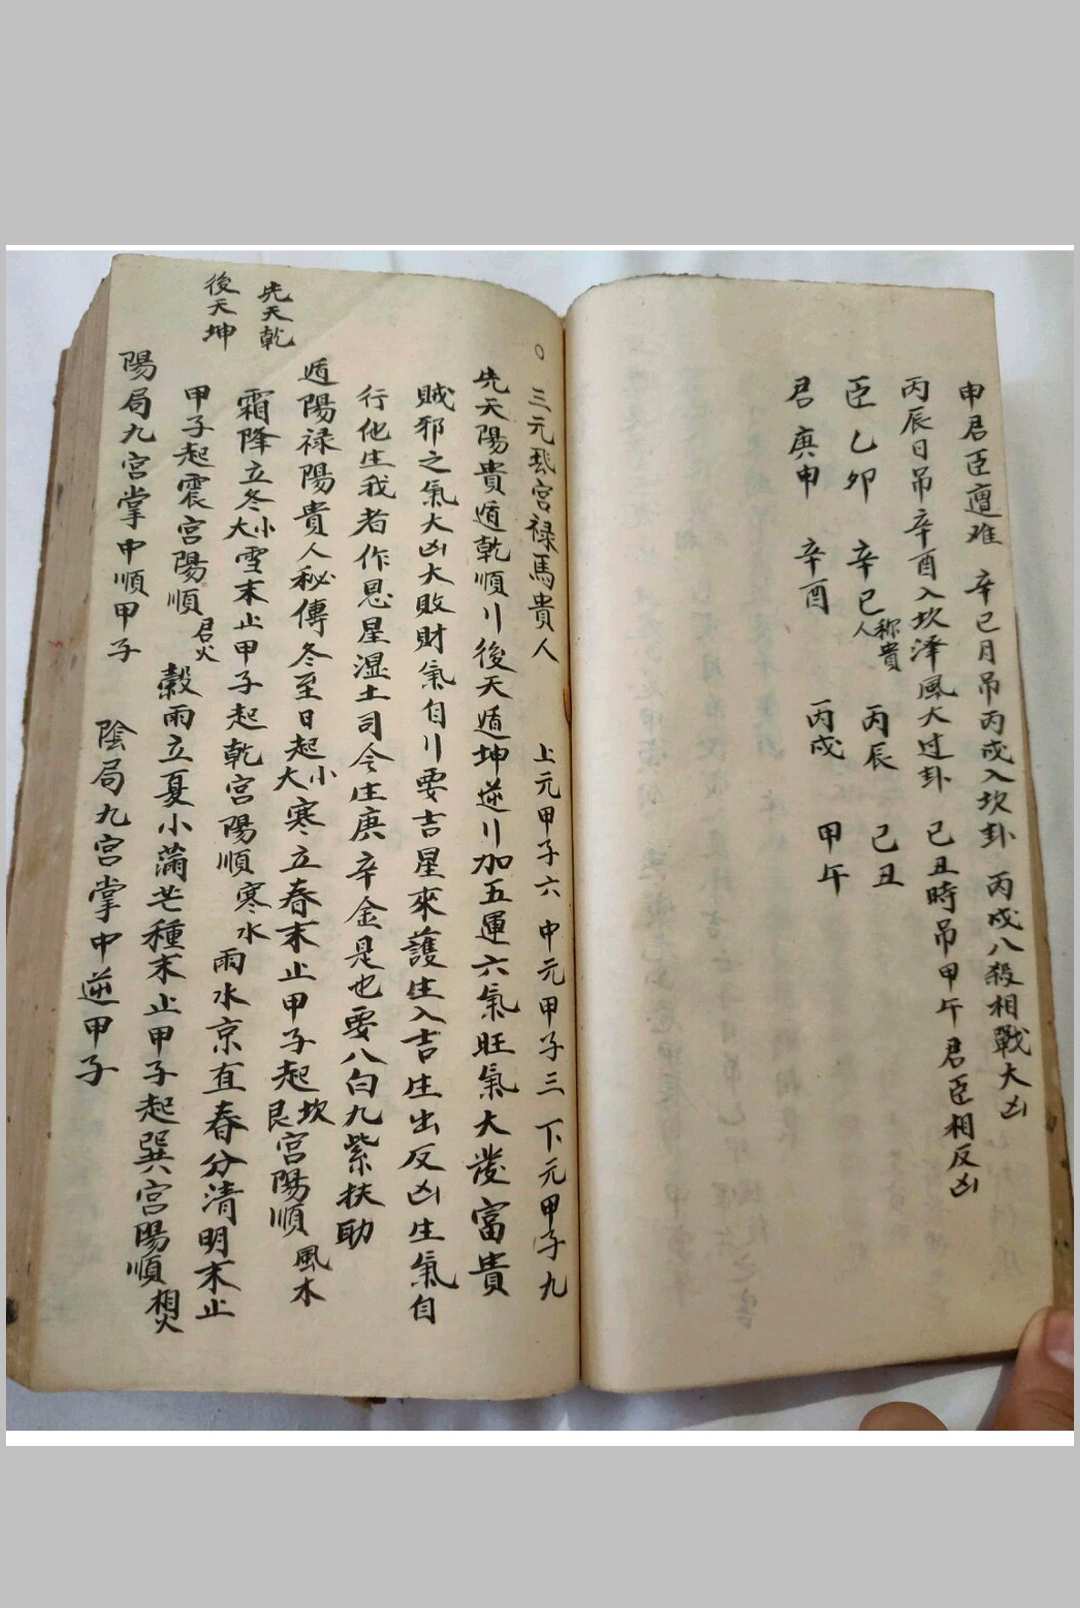 申君臣遭难　辛巳月吊丙戌入坎卦　丙戌八殺相戰大凶
丙辰日吊辛酉入坎泽風大过卦　己丑時吊甲午君臣相反凶
臣乙卯　辛巳称貴人　丙辰　己丑
君庚申　辛酉　丙戌　甲午
○三元飛宮禄馬貴人　上元甲子六　中元甲子三　下元甲子九
先天陽貴遁乾順刂後天遁坤逆刂加五運六氣旺氣大發富貴
賊邪之氣大凶大敗財氣自刂要吉星來護生入吉生出反凶生氣自
行他生我者作恩星湿土司令庄庚辛金是也要八白九紫扶助
遁陽禄陽貴人秘傳冬至日起小大寒立春末止甲子起坎艮宮陽順風木
先天乾
霜降立冬小大雪末止甲子起乾宮陽順寒水　雨水京直春分清明末止
後天坤
甲子起震宮陽順君火　穀雨立夏小满芒種末止甲子起巽宮陽順相火
陽局九宮掌中順甲子　陰局九宮掌中逆甲子